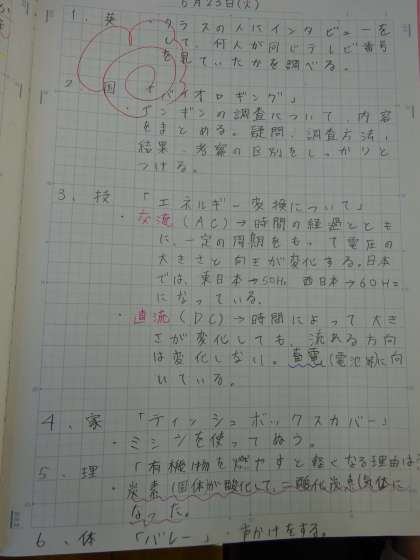 6月23日(火)
1. 英 ・クラスの人にインタビューを
して、何人が同じテレビ番号
を見ていたかを調べる。
2. 国 「バイオロギング」
・ペンギンの調査について、内容
をまとめる。疑問、調査方法、
結果、考察の区別をしっかりと
つける。
3. 技 「エネルギー変換について」
・交流(AC)→時間の経過ととも
に、一定の周期をもって電圧の
大きさと向きが変化する。日本
では、東日本→50Hz 西日本→60Hz
になっている。
・直流(DC)→時間によって大き
さが変化しても、流れる方向
は変化しない。蓄電(電池)に向
いている。
4. 家 「ティッシュボックスカバー」
・ミシンを使ってぬう。
5. 理 「有機物を燃やすと軽くなる理由は
炭素(固体)が酸化して、二酸化炭素(気体)に
なった。
6. 体 「バレー」・声かけをする。